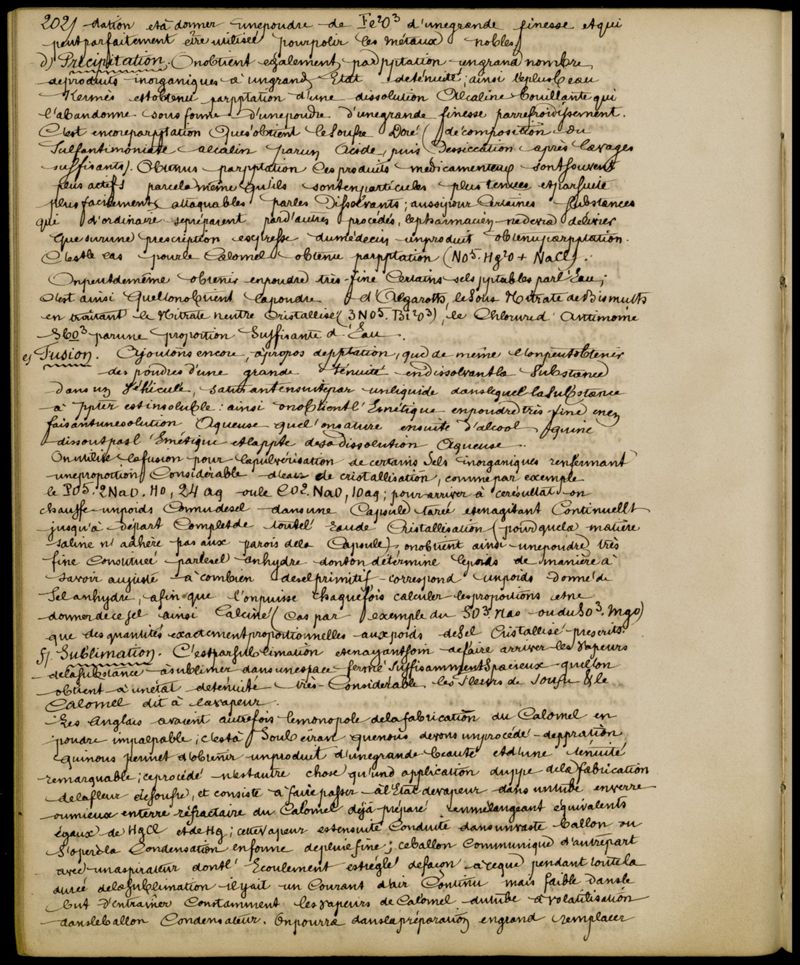 202) dation et à donner une poudre de Fe²O³ d'une grande finesse et qui
peut parfaitement être utilisée pour polir les métaux nobles.
d) Précipitation. On obtient également par pptation un grand nombre
de produits inorganiques à un grand Etat de ténuité; ainsi le plus beau
Kermès est obtenu par pptation d'une dissolution Alcaline bouillante qui
l'abandonne sous forme d'une poudre d'une grande finesse par refroidissement.
C'est encore par pptation que s'obtient le Soufre Doré (décomposition du
Sulfantimoniate alcalin par un Acide, puis Dessiccation après lavages
suffisants). Obtenus par pptation les produits médicamenteux sont souvent
plus actifs par cela même qu'ils sont en particules plus ténues et par suite
plus facilement attaquables par les Dissolvants; aussi pour certaines Substances
qui d'ordinaire se préparent par d'autres procédés, le pharmacien ne devra délivrer
que sur une prescription expresse du médecin un produit obtenu par pptation.
C'est le cas pour le Calomel obtenu par pptation (NO⁵.Hg²O + NaCl).
On peut de même obtenir en poudre très-fine certains sels pptables par l'Eau;
C'est ainsi que l'on obtient la poudre d'Algaroth, le Sous Nitrate de Bismuth
en traitant le Nitrate neutre Cristallisé (3NO⁵.Bi²O³), le Chlorure d'Antimoine
SbO³ par une proportion Suffisante d'Eau.
e) Fusion. Ajoutons encore, à propos de pptation, que de même l'on peut obtenir
des poudres d'une grande ténuité en dissolvant la Substance
dans un Véhicule, saturant ensuite par un liquide dans lequel la Substance
à ppter est insoluble: ainsi on obtient l'Emétique en poudre très-fine en
faisant une solution Aqueuse que l'on sature ensuite d'alcool qui ne
dissout pas l'Emétique et la ppte de sa dissolution Aqueuse.
On utilise la fusion pour la pulvérisation de certains Sels inorganiques renfermant
une proportion Considérable d'eau de cristallisation, comme par exemple
le PO⁵.2NaO.HO, 24 aq ou le CO².NaO, 10aq; pour arriver à ce résultat on
chauffe un poids Connu de sel dans une Capsule tarée et en agitant Continuellt
jusqu'à départ Complet de toute l'Eau de Cristallisation (pour que la matière
saline n'adhère pas aux parois de la Capsule), on obtient ainsi une poudre très
fine constituée par le sel anhydre dont on détermine le poids de manière à
savoir au juste à combien de sel primitif correspond un poids Donné de
Sel anhydre, afin que l'on puisse chaque fois calculer les proportions et ne
donner de ce sel ainsi Calciné (cas par exemple du SO³.NaO ou du SO³.MgO)
que des quantités exactement proportionnelles aux poids de Sel Cristallisé prescrits.
f) Sublimation. C'est par sublimation et en ayant soin de faire arriver les Vapeurs
de la Substance à sublimer dans un espace fermé suffisamment Spacieux que l'on
obtient à un état de ténuité très-Considérable les Fleurs de Soufre & le
Calomel dit à la vapeur.
Les Anglais avaient autrefois le monopole de la fabrication du Calomel en
poudre impalpable; c'est à Soubeiran que nous devons un procédé de ppration
qui nous permet d'obtenir un produit d'une grande beauté et d'une ténuité
remarquable; ce procédé n'est autre chose qu'une application du ppe de la fabrication
de la fleur de Soufre, et consiste à faire passer à l'Etat de vapeur dans un tube en verre
ou mieux en terre réfractaire du Calomel déjà préparé en mélangeant équivalents
égaux de HgCl et de Hg; cette vapeur est ensuite Conduite dans un vaste ballon où
s'opère la Condensation en forme de pluie fine; ce ballon Communique d'autre part
avec un aspirateur dont l'Ecoulement est réglé de façon à ce que pendant toute la
durée de la Sublimation il y ait un Courant d'air Continu mais faible dans le
but d'entraîner Constamment les vapeurs de Calomel du tube à volatilisation
dans le ballon Condensateur. On pourra dans la préparation en grand remplacer